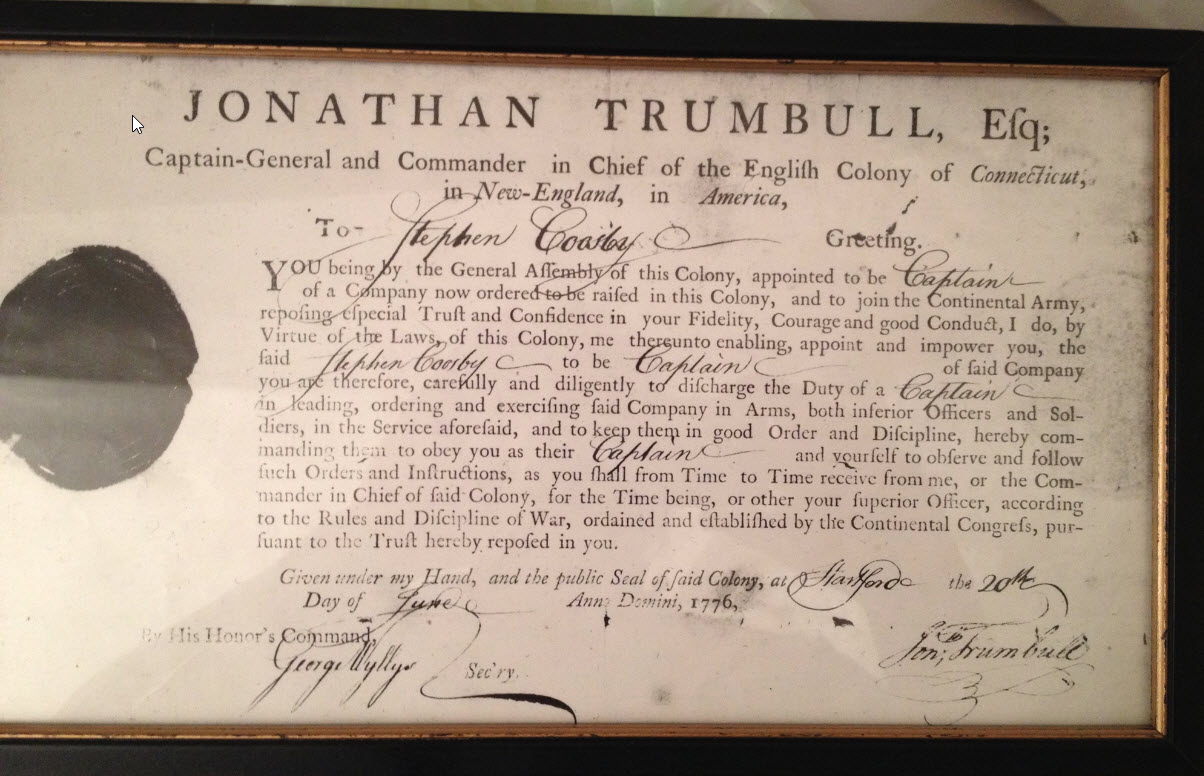 JONATHAN TRUMBULL, Eſq;
Captain-General and Commander in Chief of the Engliſh Colony of Connecticut,
in New-England, in America,
To Stephen Coosby Greeting.
YOU being by the General Aſſembly of this Colony, appointed to be Captain
of a Company now ordered to be raiſed in this Colony, and to join the Continental Army,
repoſing eſpecial Truſt and Confidence in your Fidelity, Courage and good Conduct, I do, by
Virtue of the Laws, of this Colony, me thereunto enabling, appoint and impower you, the
ſaid Stephen Coosby to be Captain of ſaid Company
you are therefore, carefully and diligently to diſcharge the Duty of a Captain
in leading, ordering and exerciſing ſaid Company in Arms, both inferior Officers and Sol-
diers, in the Service aforeſaid, and to keep them in good Order and Diſcipline, hereby com-
manding them to obey you as their Captain and yourſelf to obſerve and follow
ſuch Orders and Inſtructions, as you ſhall from Time to Time receive from me, or the Com-
mander in Chief of ſaid Colony, for the Time being, or other your ſuperior Officer, according
to the Rules and Diſcipline of War, ordained and eſtabliſhed by the Continental Congreſs, pur-
ſuant to the Truſt hereby repoſed in you.
Given under my Hand, and the public Seal of ſaid Colony, at Hartford the 20th
Day of June Anno Domini, 1776,
By His Honor's Command,
George Wyllys Sec'ry.
Jon;th Trumbull